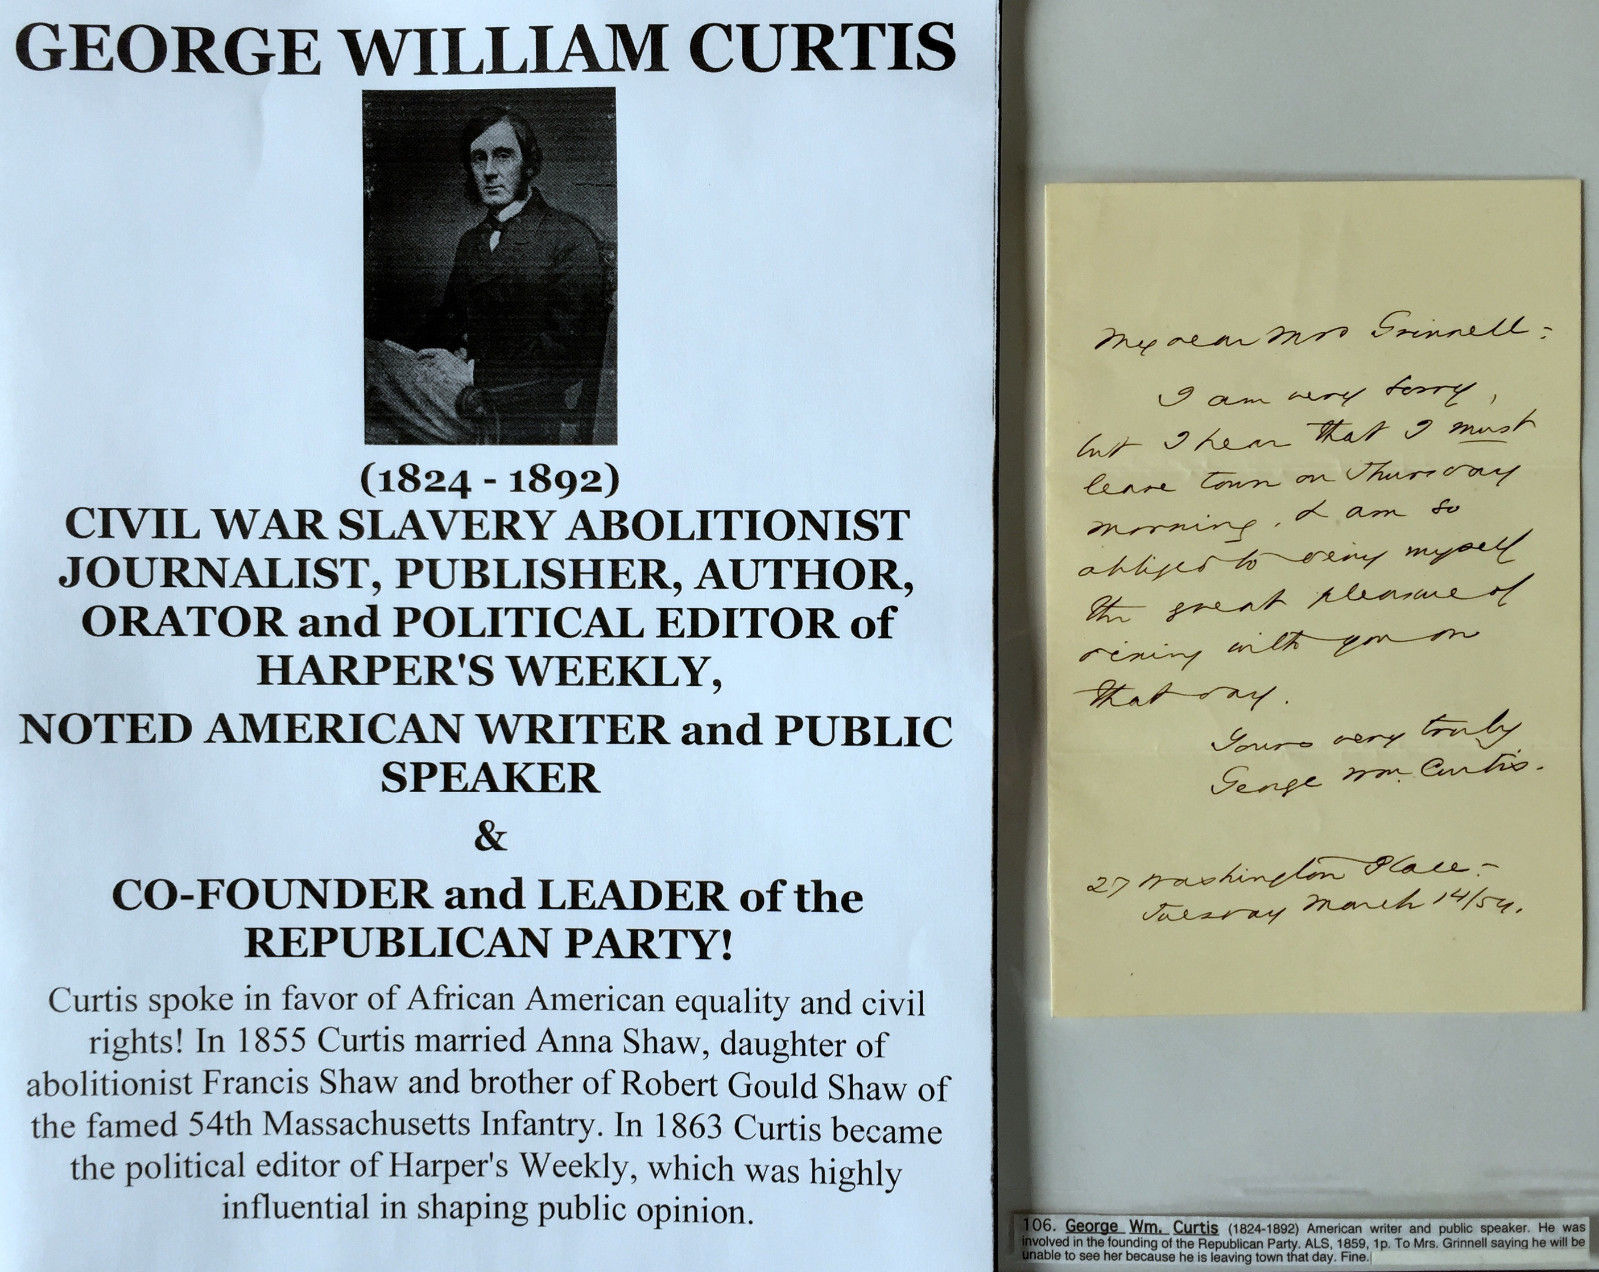 GEORGE WILLIAM CURTIS
(1824 - 1892)
CIVIL WAR SLAVERY ABOLITIONIST
JOURNALIST, PUBLISHER, AUTHOR,
ORATOR and POLITICAL EDITOR of
HARPER'S WEEKLY,
NOTED AMERICAN WRITER and PUBLIC
SPEAKER
&
CO-FOUNDER and LEADER of the
REPUBLICAN PARTY!
Curtis spoke in favor of African American equality and civil
rights! In 1855 Curtis married Anna Shaw, daughter of
abolitionist Francis Shaw and brother of Robert Gould Shaw of
the famed 54th Massachusetts Infantry. In 1863 Curtis became
the political editor of Harper's Weekly, which was highly
influential in shaping public opinion.
My dear Mrs Grinnell -
I am very sorry,
but I hear that I must
leave town on Thursday
morning. I am so
obliged to deny myself
the great pleasure of
dining with you on
that day.
Yours very truly
George Wm. Curtis.
27 Washington Place -
Tuesday March 14/54.
106. George Wm. Curtis (1824-1892) American writer and public speaker. He was
involved in the founding of the Republican Party. ALS, 1859, 1p. To Mrs. Grinnell saying he will be
unable to see her because he is leaving town that day. Fine.